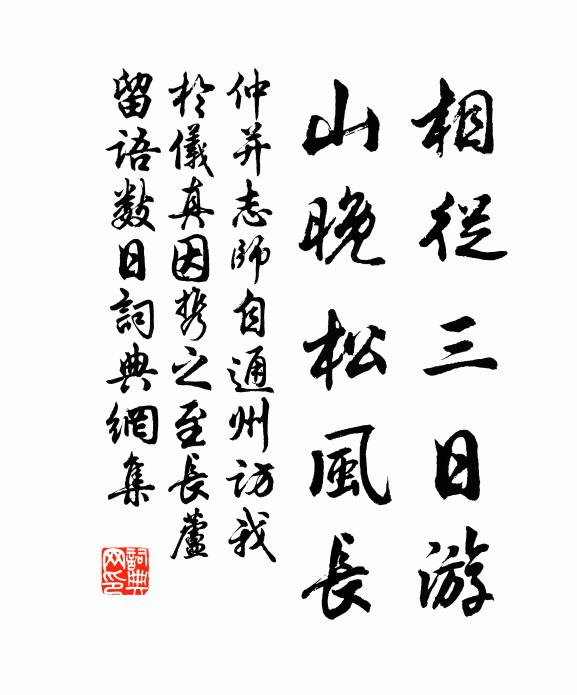 相從三日游
山晚松風長
仲并志師自通州訪我
於儀真因携之至長蘆
留語數日詞典網集
詞典網印